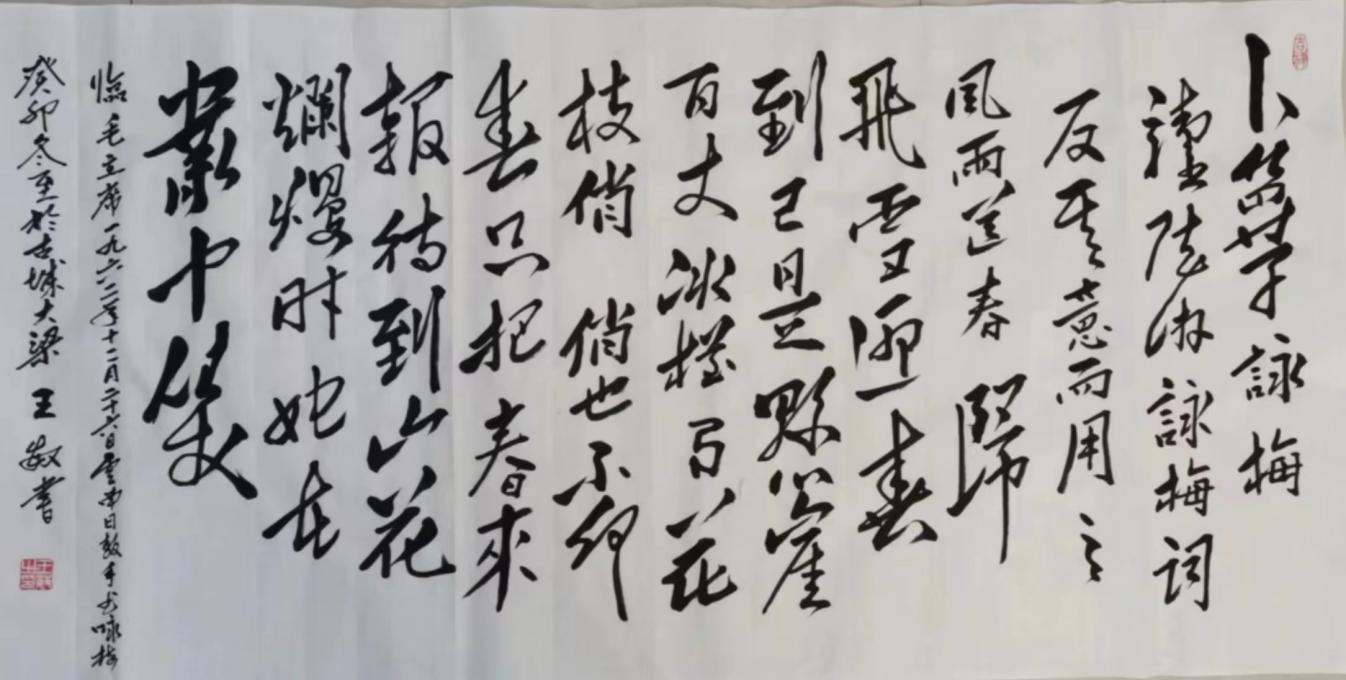 卜算子詠梅
讀陸游詠梅词
反其意而用之
風雨送春歸
飛雪迎春
到已是懸崖
百丈冰猶有花
枝俏俏也不争
春只把春來
報待到山花
爛熳时她在
叢中笑
临毛主席一九六二年十二月二十六日
癸卯冬至於古城大梁王敬書